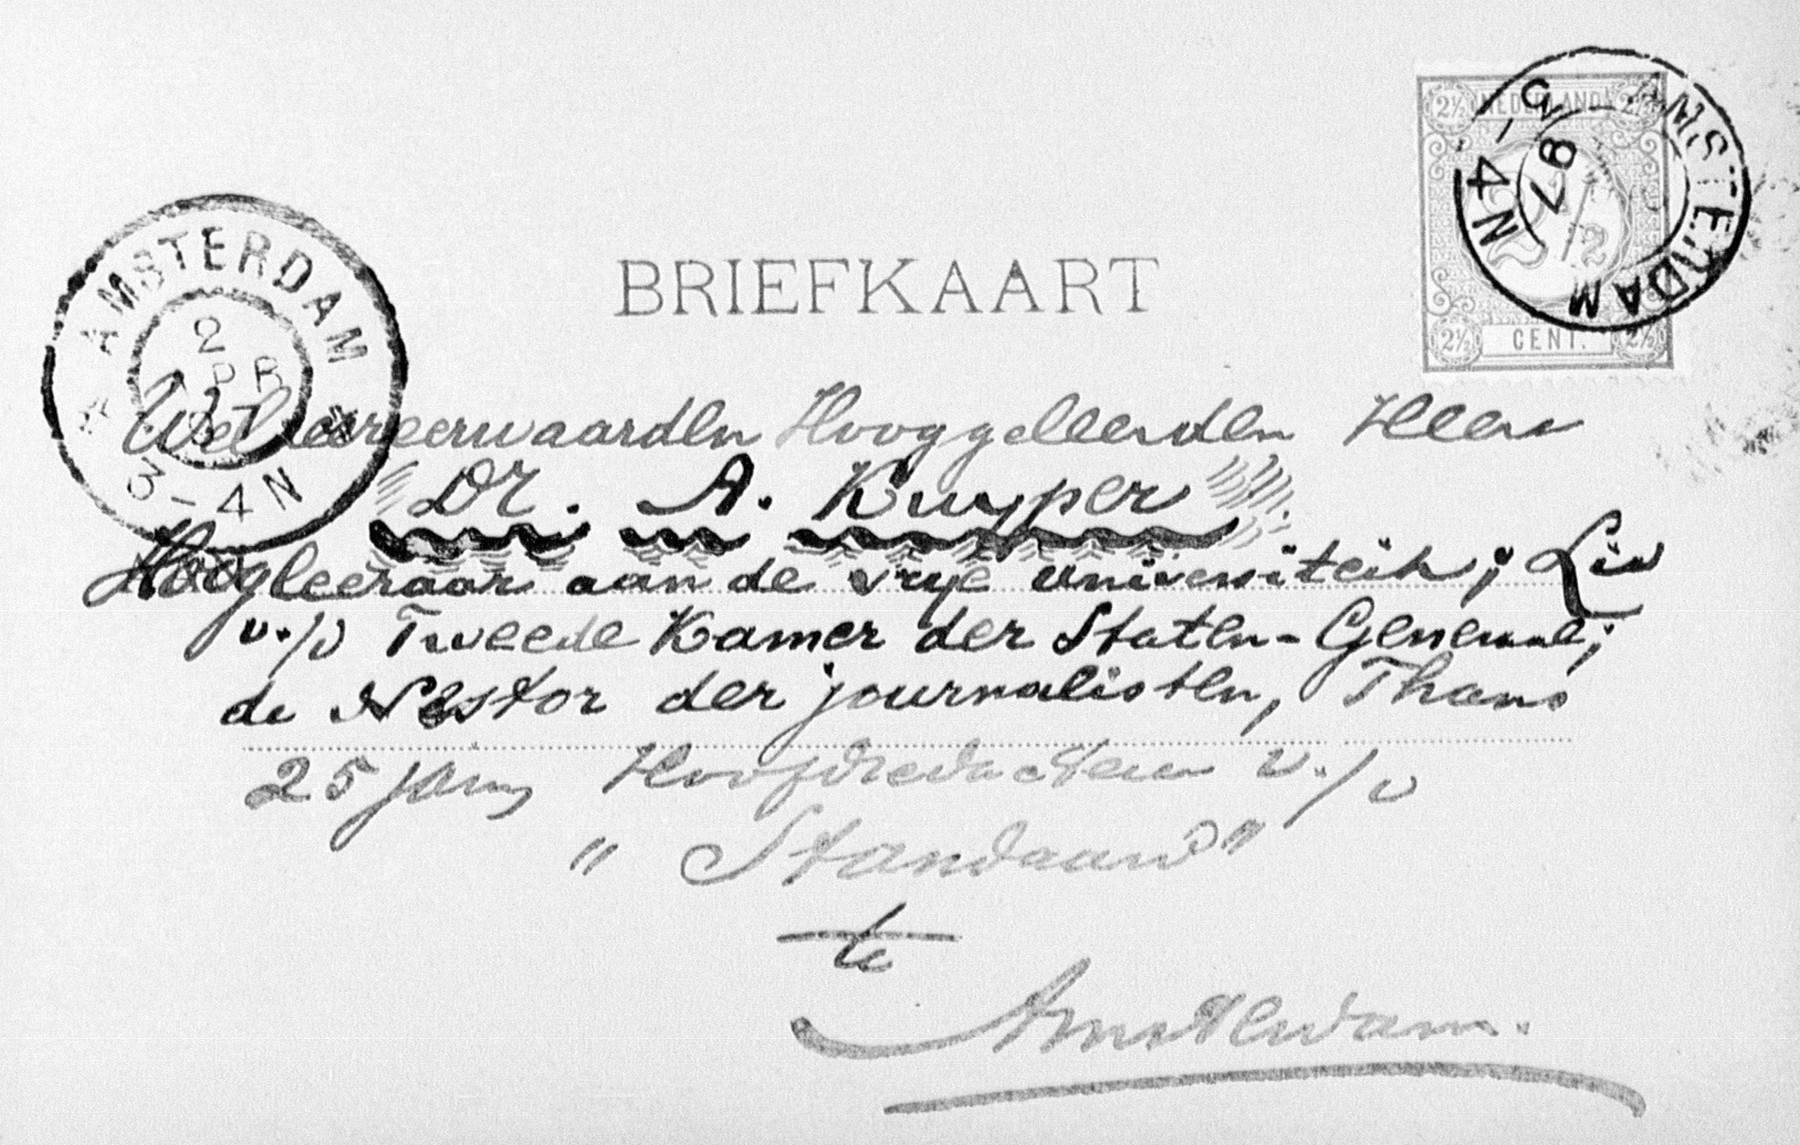 NEDERLAND
2½ 2½
AMSTERDAM
97
3-4N
2½
CENT.
2½ 2½
AMSTERDAM
2
APR
97
3-4N
BRIEFKAART
Weleerwaarden Hooggeleerden Heer
Dr. A. Kuyper
Hoogleeraar aan de vrye universiteit; Lid
v./d Tweede Kamer der Staten-Generaal;
de Nestor der journalisten, Thans
25 jaar Hoofdredacteur v./d
"Standaard"
te
Amsterdam.